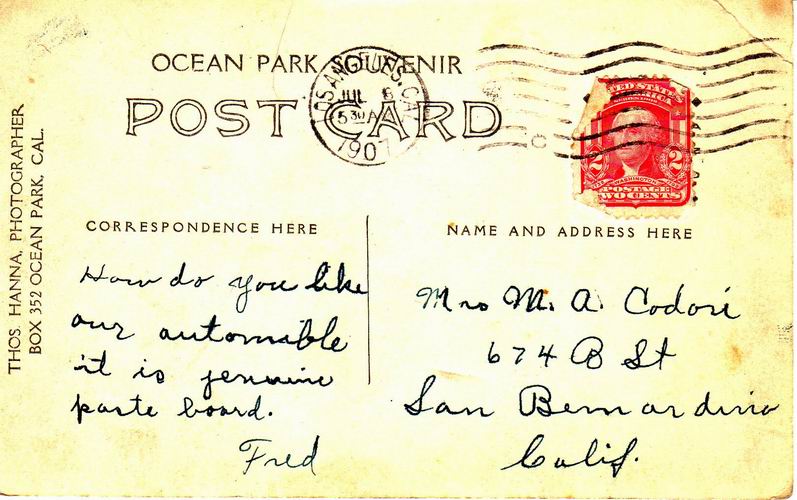 OCEAN PARK SOUVENIR
POST CARD
LOS ANGELES, CAL.
JUL 6
5 30 A
1907
UNITED STATES
AMERICA
2 2
WASHINGTON
POSTAGE
TWO CENTS
THOS. HANNA, PHOTOGRAPHER
BOX 352 OCEAN PARK, CAL.
CORRESPONDENCE HERE
How do you like
our automible
it is jenuine
paste board.
Fred
NAME AND ADDRESS HERE
Mrs M. A. Codori
674 B St
San Bernardino
Calif.